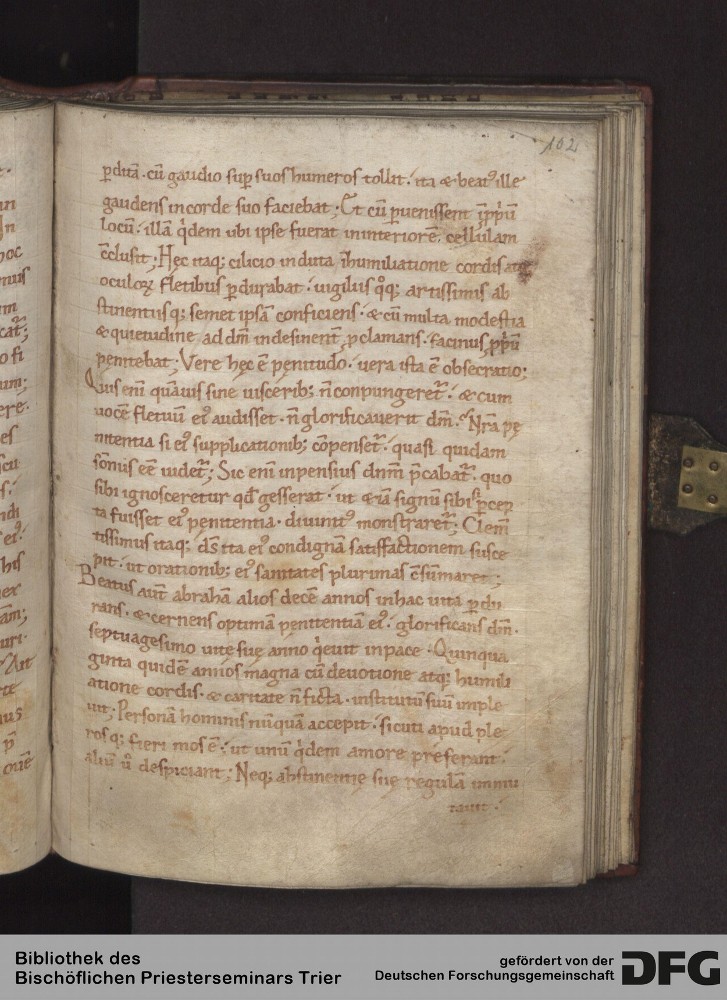 102
ꝑditā. cū gaudio suꝑ suos humeros tollit. ita & beatꝰ ille
gaudens in corde suo faciebat; Et cū ꝑuenissent ꝓpriū
locū. illā qⁱdem ubi ipse fuerat in interiorē cellulam
cclusit; Hęc itaq; cilicio induta ī humiliatione cordis atq;
oculoꝝ fletibus ꝑdurabat. uigiliis qꝫ artissimis ab
stinentiisq; semet ipsā conficiens. & cū multa modestia
& quietudine ad dm̄ indesinent̄ ꝓclamans. facinus ꝓpriū
penitebat; Vere hęc ē penitudo. uera ista ē obsecratio;
Quis eni quāuis sine uisceribꝫ n̄ conpungeret̄. & cum
uocē fletuū eiꝰ audisset. n̄ glorificauerit dm̄. Nr̄a pę
nitentia si eiꝰ supplicationibꝫ cōpenset̄. quasi quidam
somnus eē uidet̄; Sic eni inpensius dnm̄ ꝓcabat̄. quo
sibi ignosceretur qđ gesserat. ut & iā signū sibi si ꝑcep
ta fuisset eiꝰ penitentia. diuinitꝰ monstraret̄; Clem̄
tissimus itaq; ds̄ ita eiꝰ condignā satisfactionem susce
pit. ut orationibꝫ eiꝰ sanitates plurimas c̄sūmaret;
Beatus aut̄ abrahā alios decē annos in hac uita ꝑdu
rans. & cernens optimā penitentiā eiꝰ. glorificans dm̄.
septuagesimo uite suę anno qⁱeuit in pace. Quinqua
ginta quidē annos magna cū deuotione atq; humili
atione cordis. & caritate n̄ ficta. institutū suū imple
uit; Personā hominis nūquā accepit. sicuti apud ple
rosq; fieri mos ē. ut unū qⁱdem amore preferant.
aliū ū despiciant; Neq; abstinentie suę regulā inmu
tauit.
Bibliothek des
Bischöflichen Priesterseminars Trier
gefördert von der
Deutschen Forschungsgemeinschaft
DFG